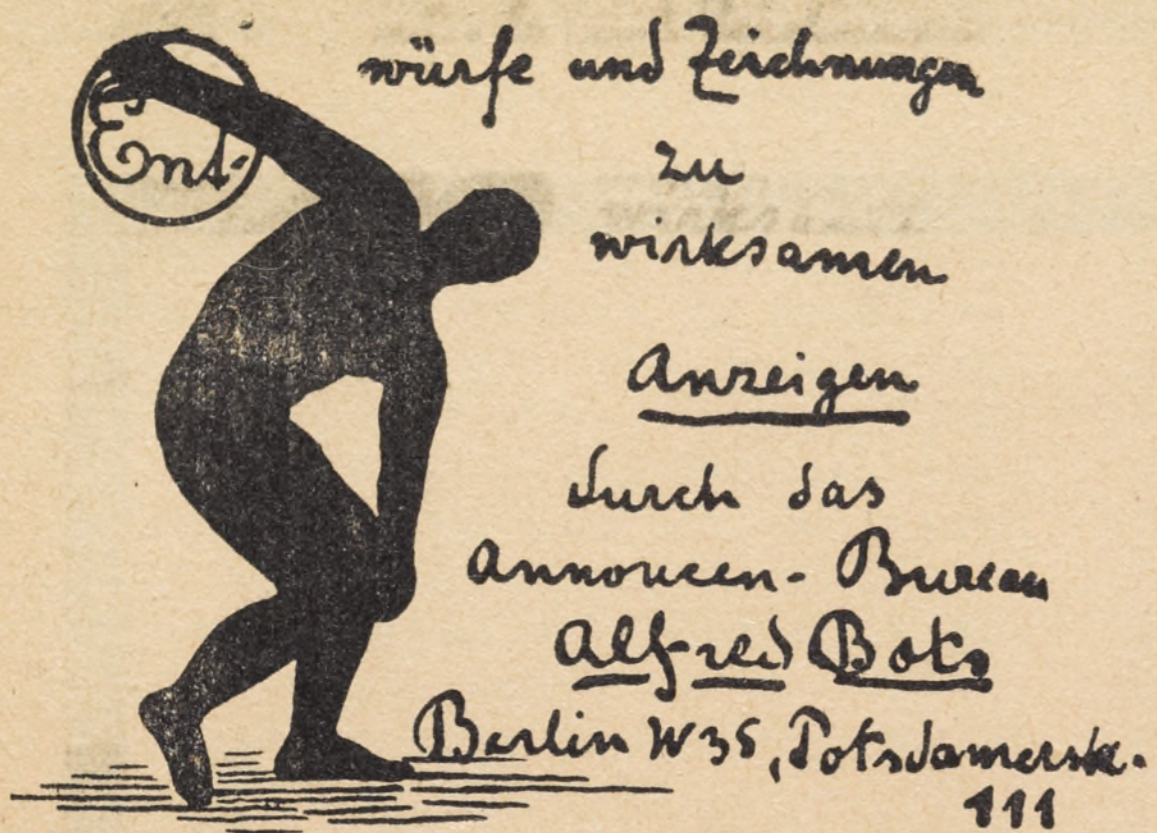 Ent-
würfe und Zeichnungen
zu
wirksamen
Anzeigen
durch das
Annoncen-Bureau
Alfred Boks
Berlin W 35, Potsdamerstr.
111